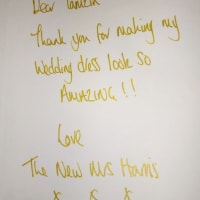 Dear Tamzin
Thank you for making my
Wedding dress look so
AMAZING!!
Love
The New Mrs Harris
x x x